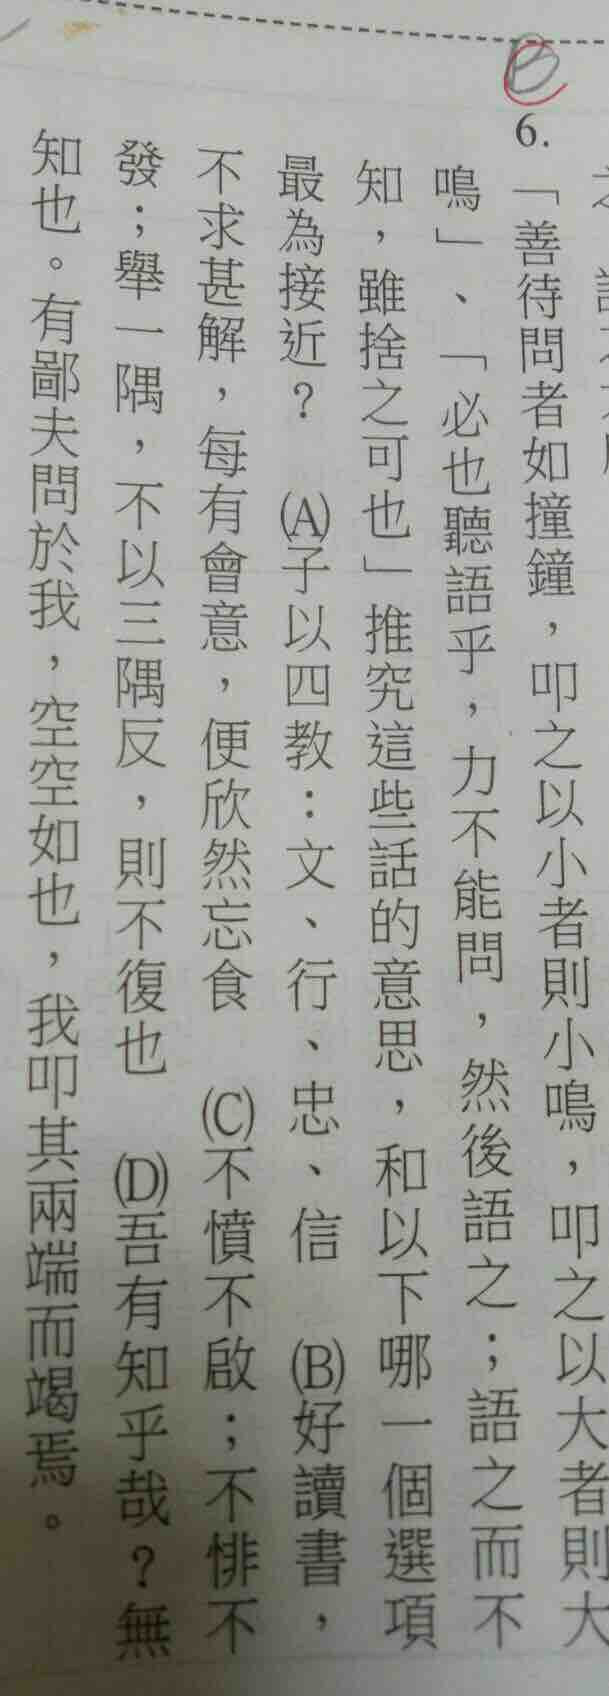 B
6.「善待問者如撞鐘，叩之以小者則小鳴，叩之以大者則大
鳴」、「必也聽語乎，力不能問，然後語之；語之而不
知，雖捨之可也」推究這些話的意思，和以下哪一個選項
最為接近？　(A)子以四教：文、行、忠、信　(B)好讀書，
不求甚解，每有會意，便欣然忘食　(C)不憤不啟；不悱不
發；舉一隅，不以三隅反，則不復也　(D)吾有知乎哉？無
知也。有鄙夫問於我，空空如也，我叩其兩端而竭焉。